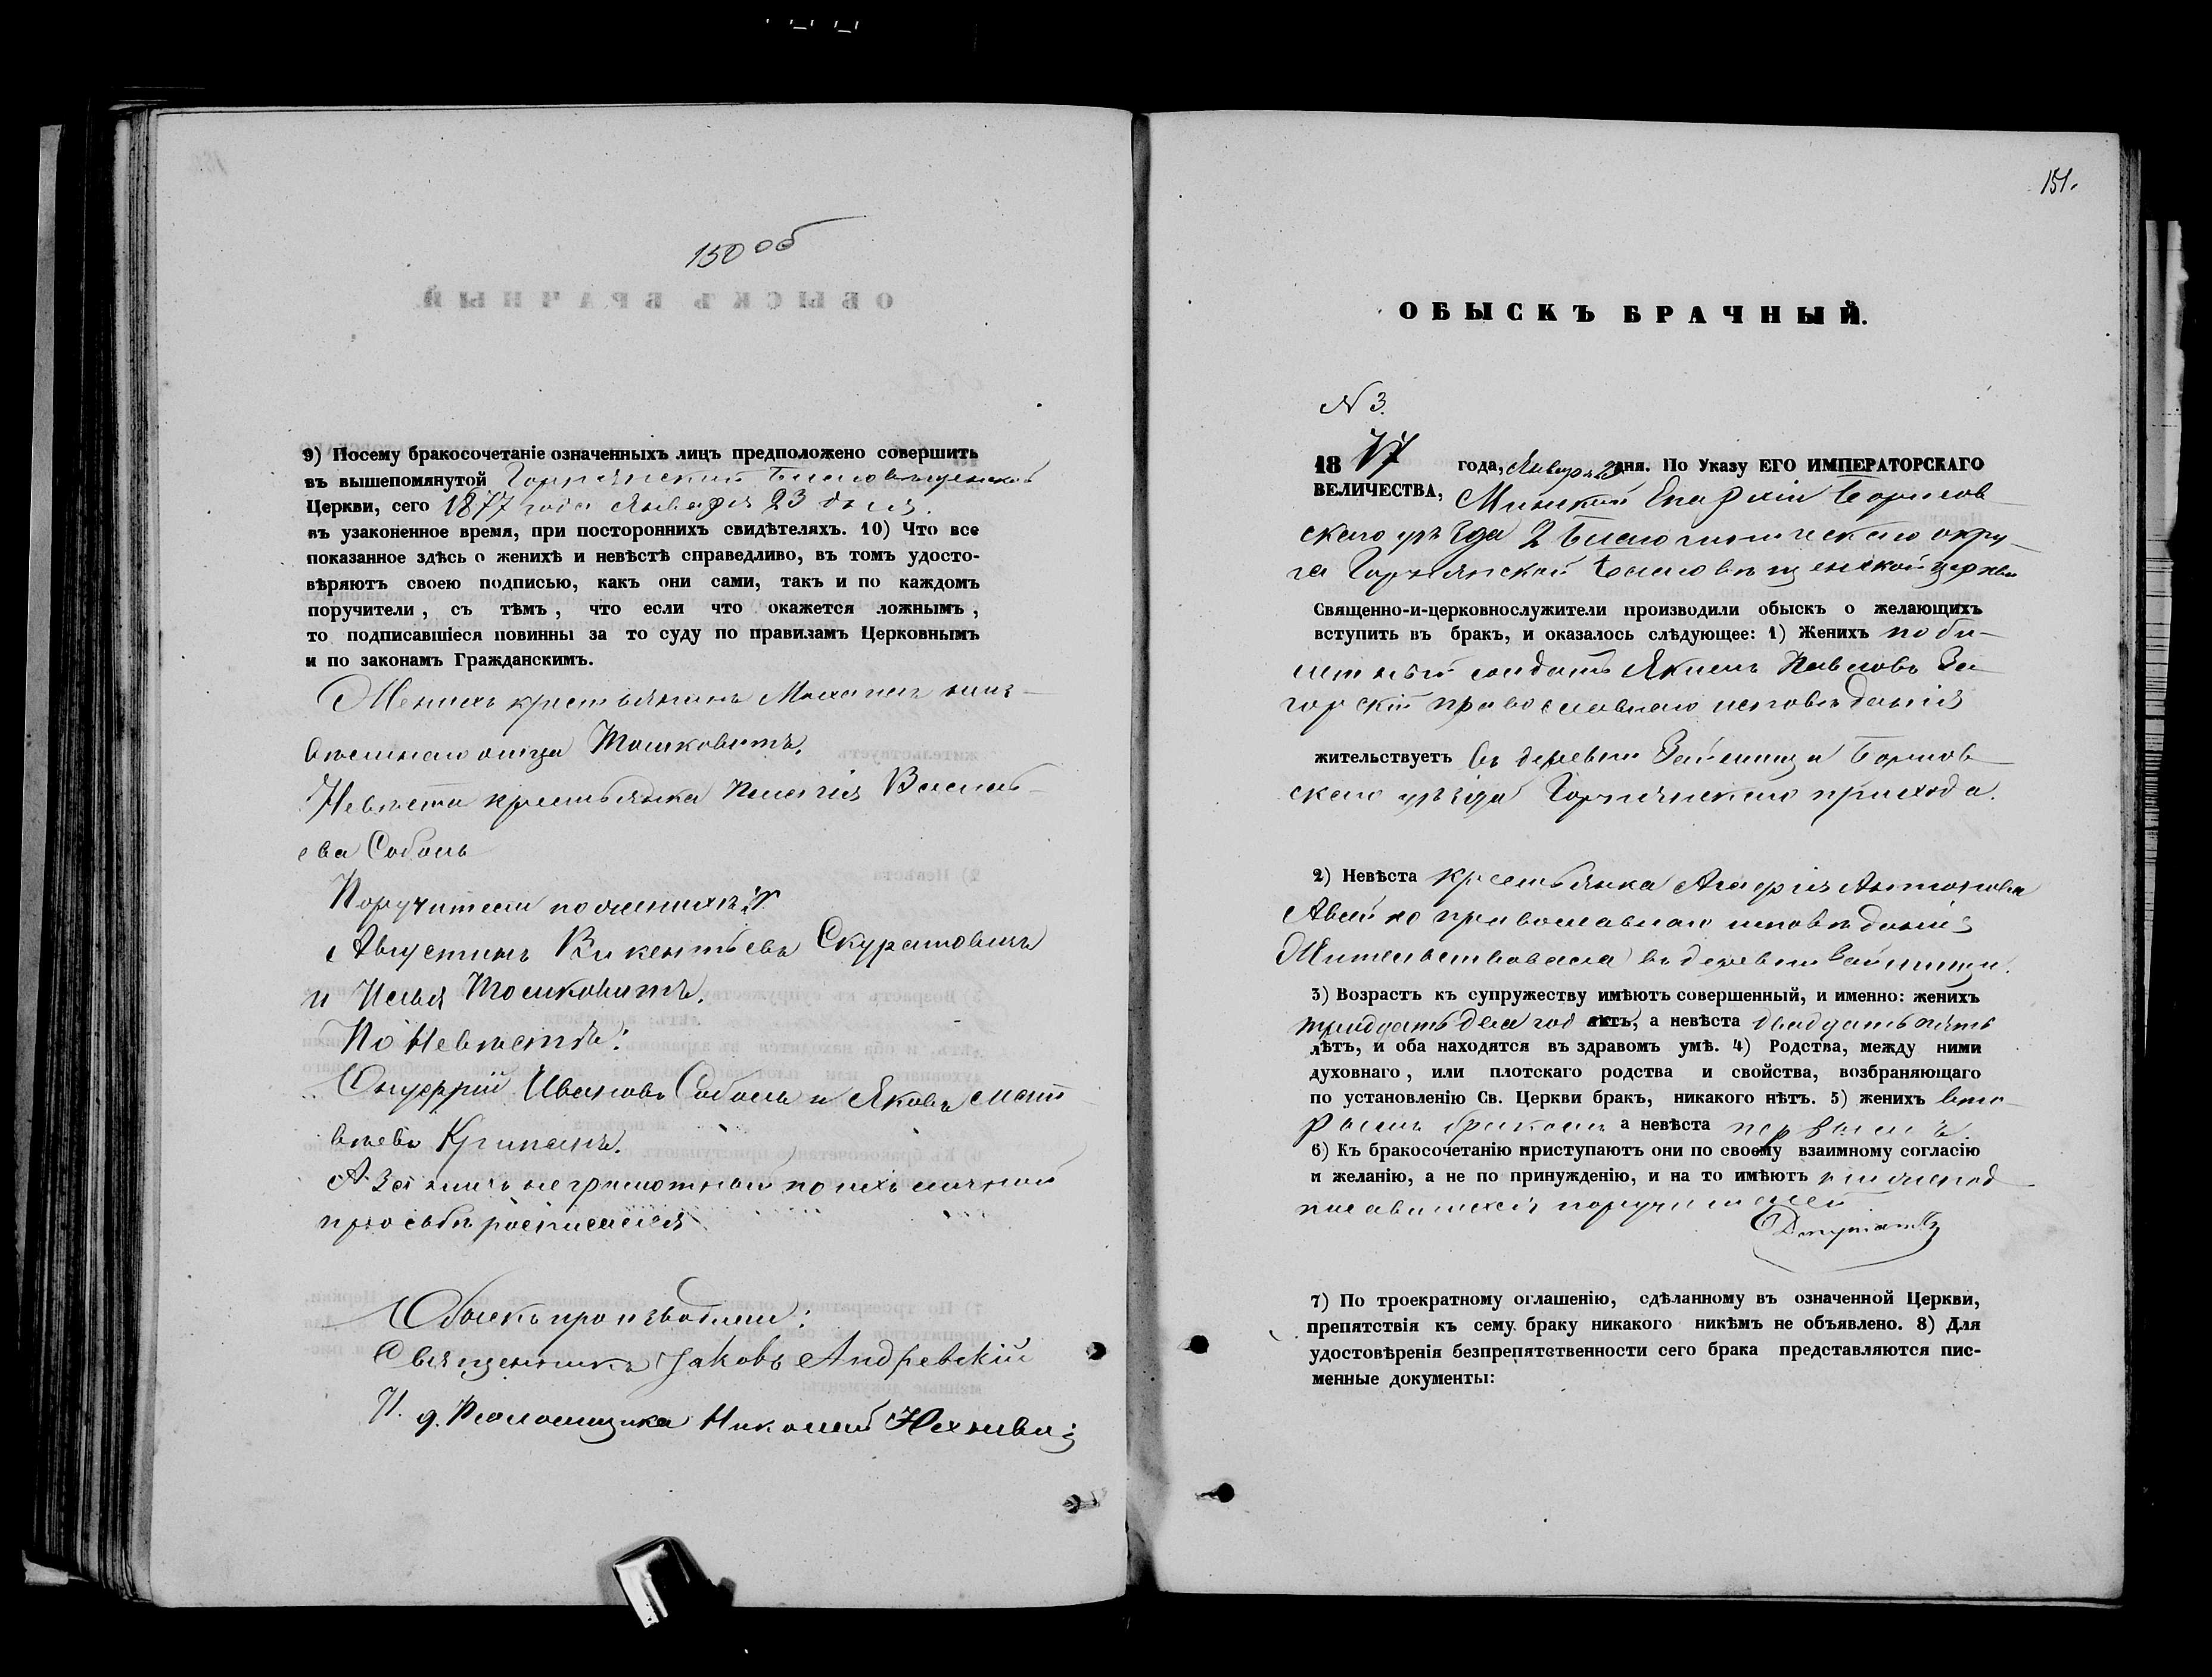 150 об
9) Посему бракосочетаніе означенныхъ лицъ предположено совершить
въ вышепомянутой Благовѣщенской
Церкви, сего 1877 года Января 23 дня.
въ узаконенное время, при постороннихъ свидѣтеляхъ. 10) Что все
показанное здѣсь о женихѣ и невѣстѣ справедливо, въ томъ удосто-
вѣряютъ своею подписью, какъ они сами, такъ и по каждомъ
поручители, съ тѣмъ, что если что окажется ложнымъ,
то подписавшіеся повинны за то суду по правиламъ Церковнымъ
и по законамъ Гражданскимъ.
Женихъ крестьянинъ Михаилъ неиз-
вѣстнаго отца
Невѣста крестьянка Пелагія Василь-
ева Соболь
Поручители по женихѣ:
Августинъ Викентьевъ Скуратовичъ
и Илья
По Невѣстѣ:
Онуфрій Ивановъ Соболь и Яковъ Мат-
вѣевъ
А за нихъ неграмотныхъ по ихъ личной
просьбѣ росписался
Обыскъ производили:
Священникъ Іаковъ Андревскій
И. д. Псаломщика Николай
151.
ОБЫСКЪ БРАЧНЫЙ.
N 3.
1877 года, Января 23 дня. По Указу ЕГО ИМПЕРАТОРСКАГО
ВЕЛИЧЕСТВА, Минской Епархіи Борисов-
скаго уѣзда 2 Благочинническаго окру-
га Благовѣщенской церкви
Священно-и-церковнослужители производили обыскъ о желающихъ
вступить въ бракъ, и оказалось слѣдующее: 1) Женихъ по би-
летный солдатъ Якимъ Павловъ За-
горскій православнаго исповѣданія
жительствуетъ въ деревни Борисов-
скаго уѣзда прихода.
2) Невѣста крестьянка Агафія Антонова
православнаго исповѣданія
Жительствовала въ деревни
3) Возрастъ къ супружеству имѣютъ совершенный, и именно: женихъ
тридцать два год лѣтъ, а невѣста двадцать пять
лѣтъ, и оба находятся въ здравомъ умѣ. 4) Родства, между ними
духовнаго, или плотскаго родства и свойства, возбраняющаго
по установленію Св. Церкви бракъ, никакого нѣтъ. 5) женихъ вто-
рымъ бракомъ а невѣста первымъ.
6) Къ бракосочетанію приступаютъ они по своему взаимному согласію
и желанію, а не по принужденію, и на то имѣютъ нижепод-
писавшихся поручителей
7) По троекратному оглашенію, сдѣланному въ означенной Церкви,
препятствія къ сему браку никакого никѣмъ не объявлено. 8) Для
удостовѣренія безпрепятственности сего брака представляются пис-
менные документы: